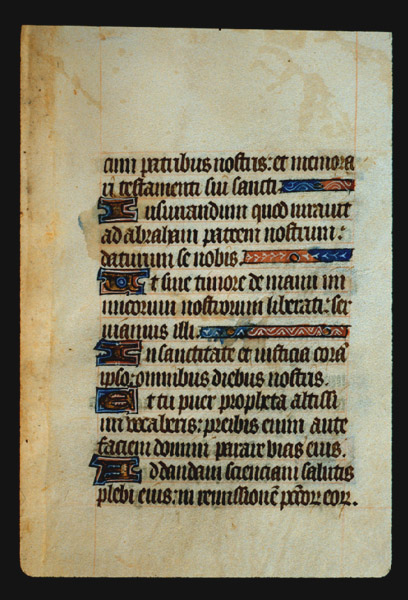 cum patribus nostris: et memora
ri testamenti sui sancti
Iusiurandum quod iurauit
ad abraham patrem nostrum:
daturum se nobis
Ut sine timore de manu in
imicorum nostrorum liberati: ser
uiamus illi
In sanctitate et iusticia corā
ipso: omnibus diebus nostris.
Et tu puer propheta altissi
mi vocaberis: preibis enim ante
faciem domini parare vias eius.
Ad dandam scienciam salutis
plebi eius: in remissionē pctōꝝ eoꝝ.